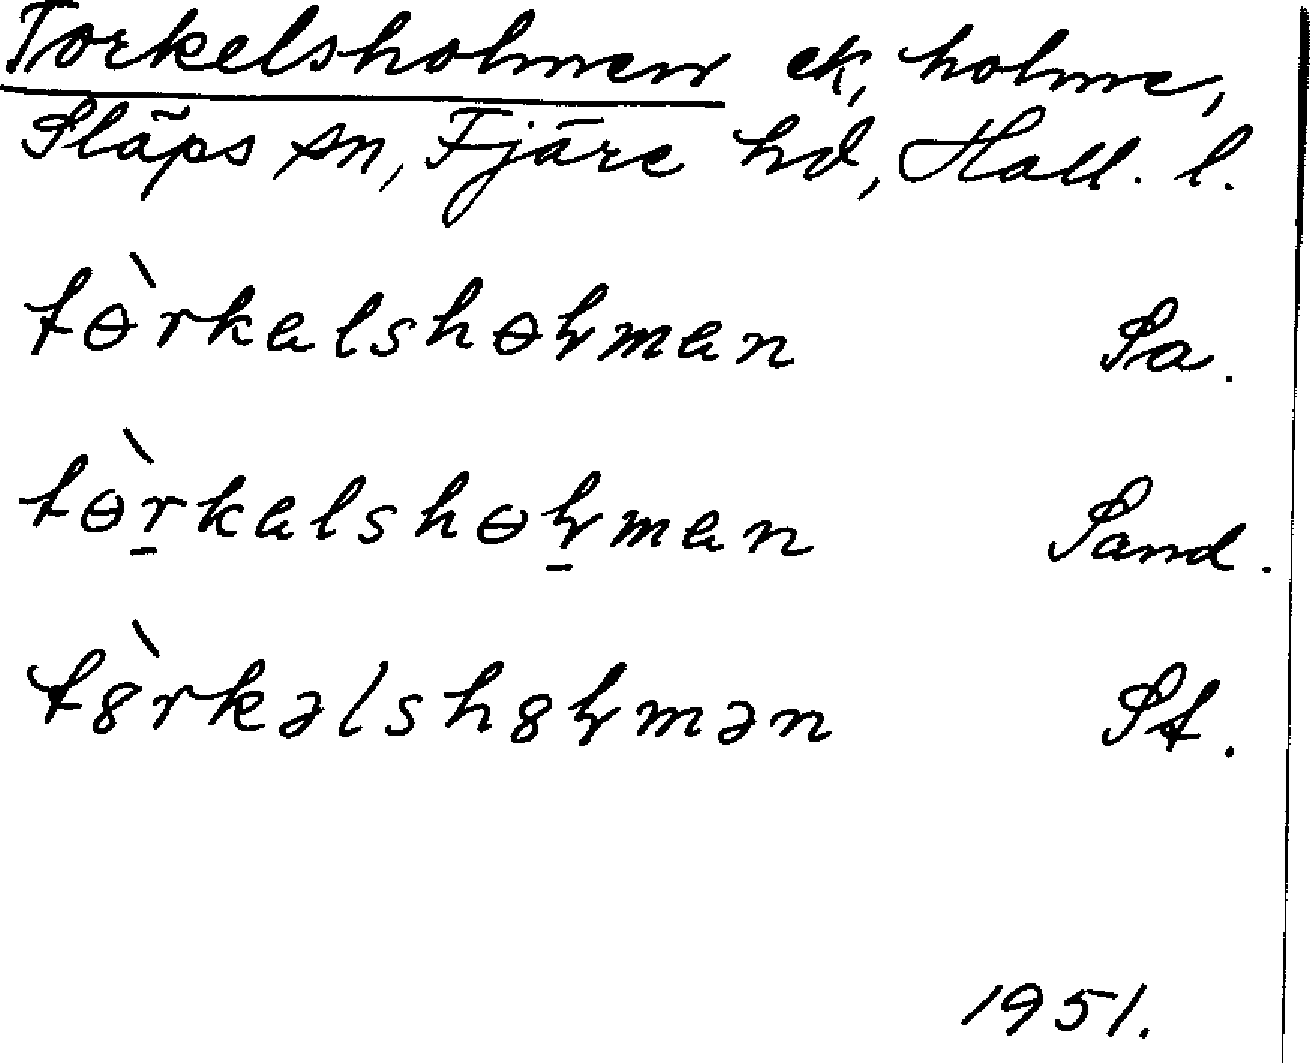 Torkelsholmen ek, holme,
Släps sn, Fjäre hd, Hall. l.
tɵ̀rkalshɵꝉman Sa.
tɵ̀r̠kalshɵꝉ̠man Sand.
t8̀rkəlsh8ꝉmən St.
1951.